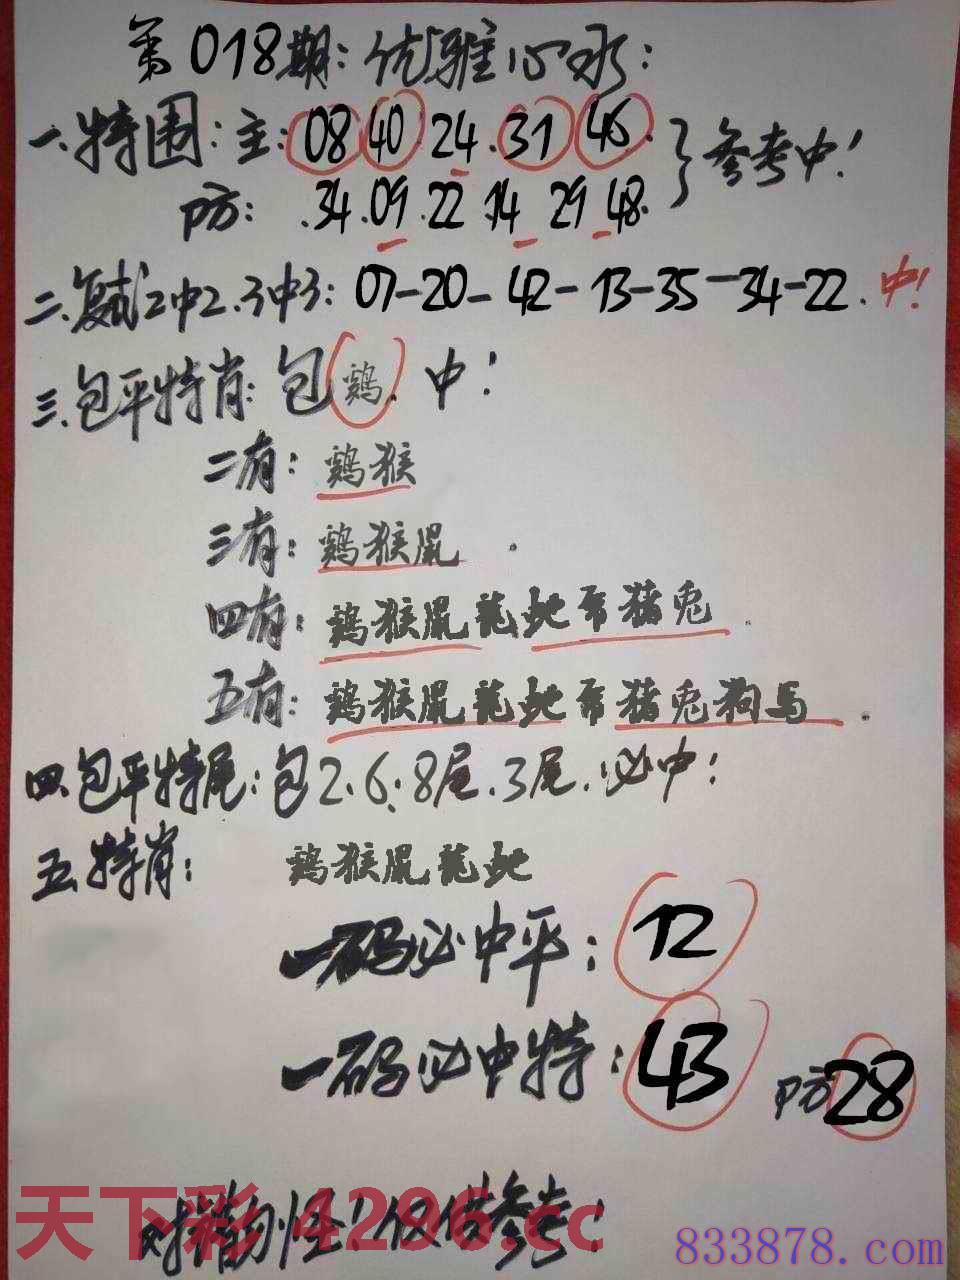 第018期:优雅心水:
一.特围:主:08 40 24.31 46.}参考中!
防: .34.09.22 14 29 48.
二.复试2中2.3中3:07-20-42-13-35-34-22.中!
三.包平特肖:包鷄.中!
二有:鷄猴
三有:鷄猴鼠.
四有:鷄猴鼠龍蛇 猪兔.
五有:鷄猴鼠龍蛇 猪兔狗马.
四.包平特尾:包2.6.8尾.3尾.必中!
五.特肖: 鷄猴鼠龍蛇
一码必中平:12
一码必中特:43 防28
怪!仅供参考!
天下彩 4296.cc
833878.com